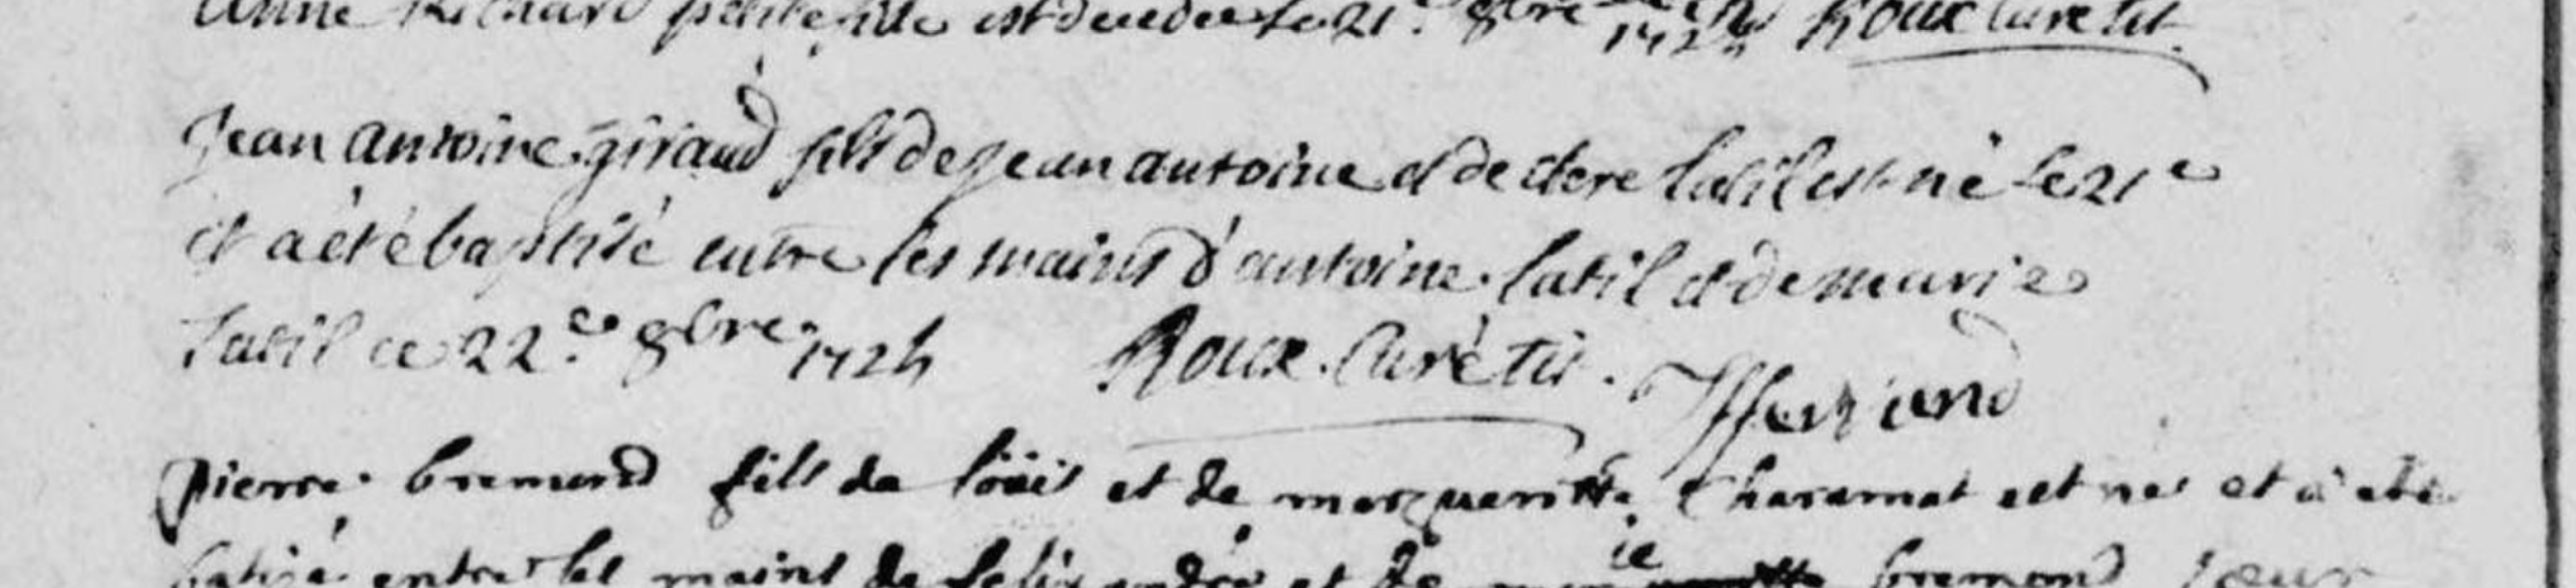 Anne Richard petite fille est decedee le 21.e 8bre 1724 Roux Curé tit.
Jean antoine giraud fils de Jean antoine et de clere latil est né le 21e
et a été baptisé entre les mains d'antoine latil et de marie
latil ce 22.e 8bre 1724 Roux. Curé tit.
pierre bremond fils de loüis et de margueritte Charamat est né et a eté
batisé entre les mains de felix andré et de bremond sœur